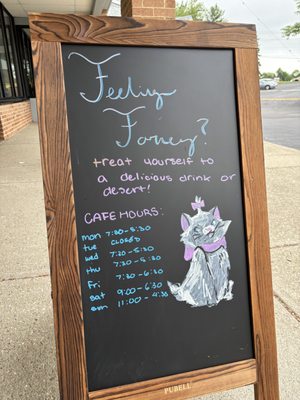 Feeling
Foncy?
treat yourself to
a delicious drink or
desert!
CAFE HOURS:
mon 7:30-5:30
tue CLOSED
wed 7:30-5:30
thu 7:30-5:30
Fri 7:30-6:30
sat 9:00-6:30
sun 11:00-4:30
PUBELL